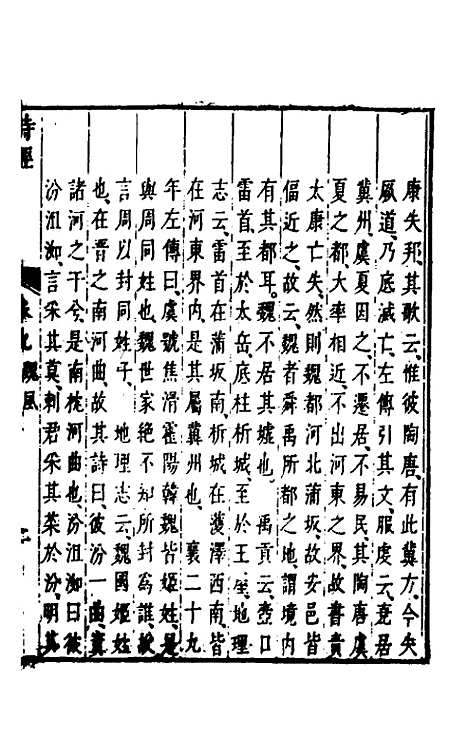 康失邦、其歌云、惟彼陶唐、有此冀方、今失
厥道、乃底滅亡、左傳引其文、服虔云、堯居
冀州、虞夏因之、不遷居、不易民、其陶唐虞
夏之都、大率相近、不出河東之界、故書責
太康亡失、然則魏都河北蒲坂、故安邑皆
偪近之、故云、魏者舜禹所都之地、謂境內
有其都耳。魏不居其墟也、禹貢云、壺口
雷首、至於太岳、底柱析城、至於王屋、地理
志云、雷首在蒲坂南、析城在濩澤西南、皆
在河東界內、是其屬冀州也、襄二十九
年左傳曰、虞虢焦滑霍陽韓魏皆姬姓、是
與周同姓也、魏世家絶不知所封爲誰、故
言周以封同姓子、地理志云、魏國姬姓
也、在晋之南河曲、故其詩曰、彼汾一曲、寘
諸河之干兮、是南枕河曲也、汾沮洳曰、彼
汾沮洳、言采其莫、刺君采其菜於汾、明其
詩經 卷九 魏風